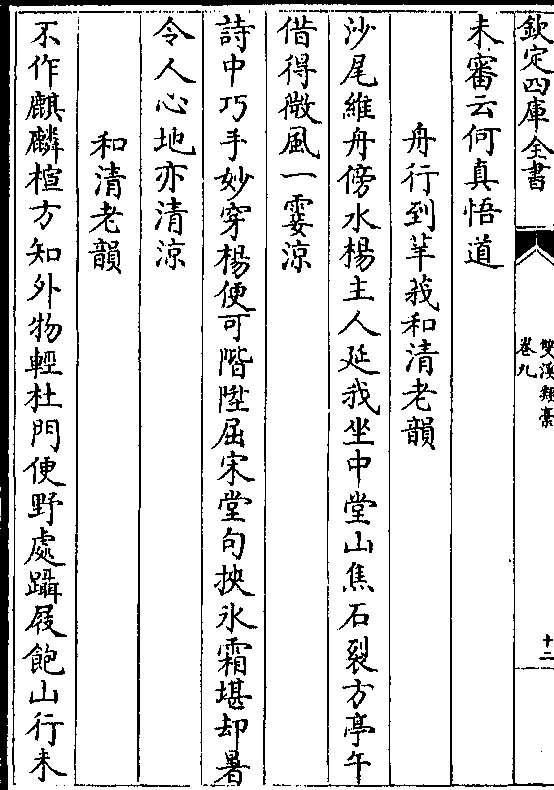 欽定四庫全書
雙溪類藁
卷九
十二
未審云何真悟道
舟行到羊莪和清老韻
沙尾維舟傍水楊主人延我坐中堂山焦石裂方亭午
借得微風一霎涼
詩中巧手妙穿楊便可階陞屈宋堂句挾氷霜堪却暑
令人心地亦清涼
和清老韻
不作麒麟楦方知外物輕杜門便野處躡屐飽山行未